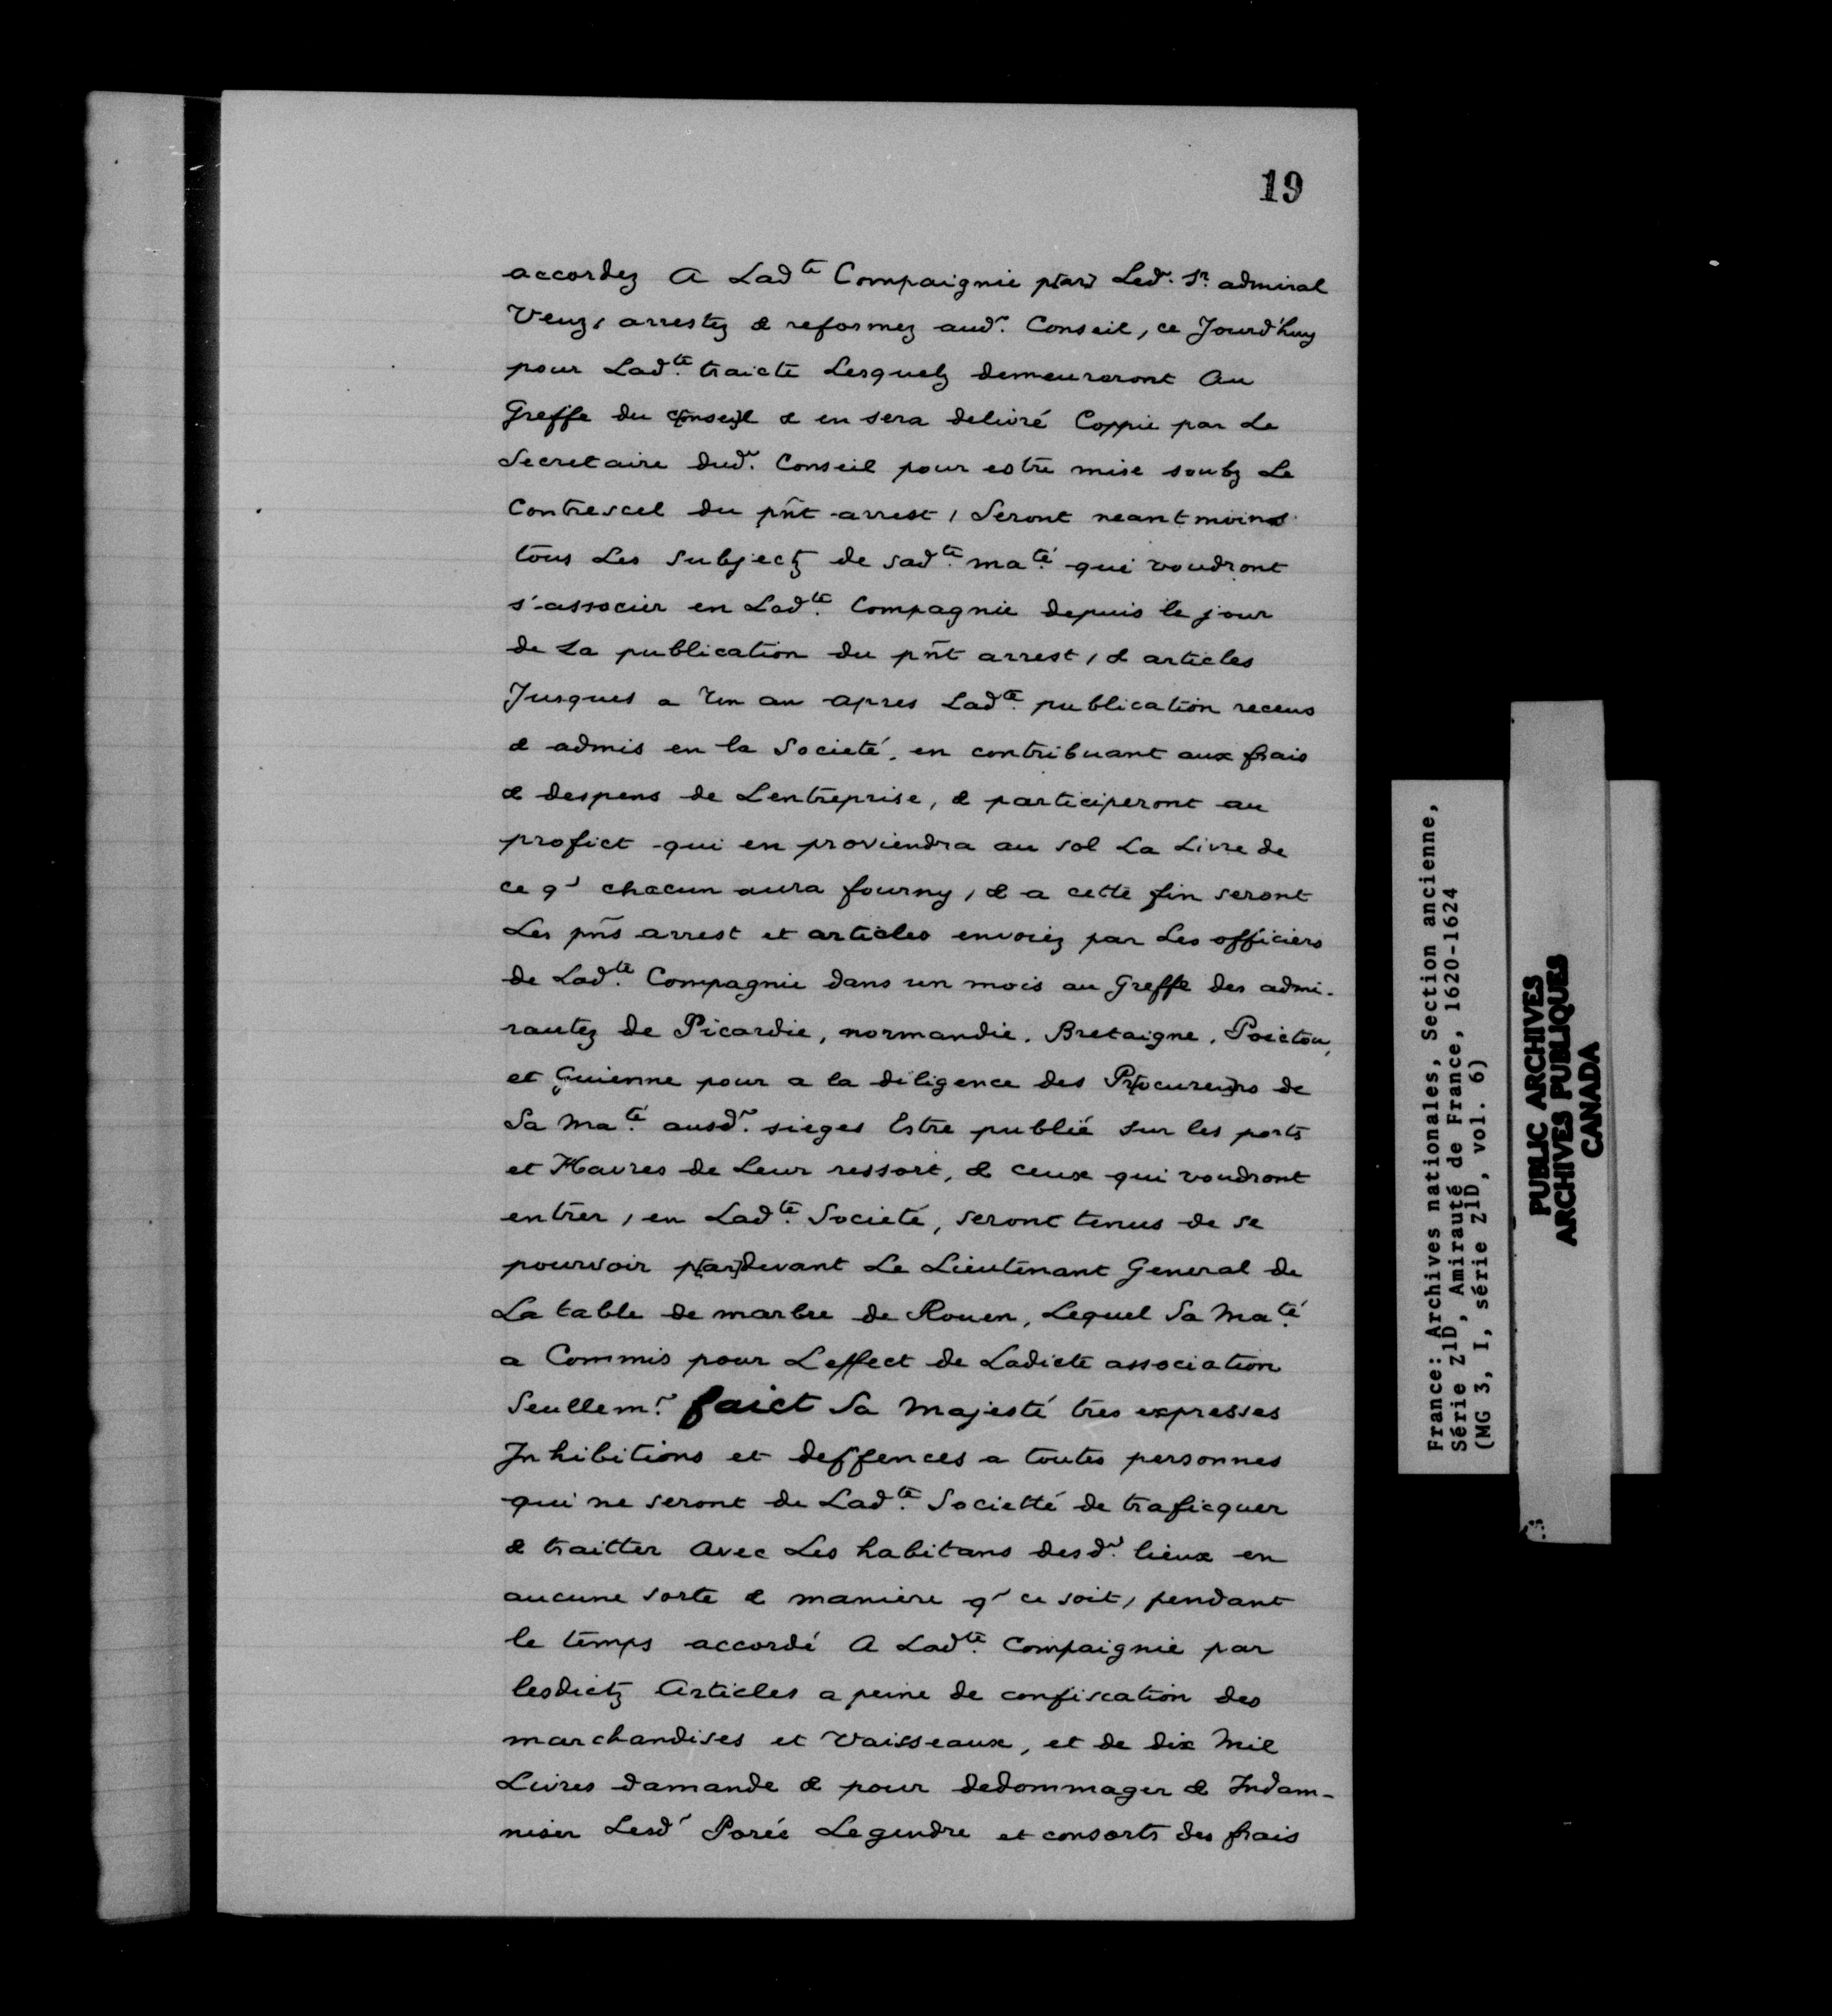 19
accordez A Ladte Compaignie p[ar] Led. Sr. admiral
Veuz, arrestez & reformez aud. Conseil, ce Jourd'huy
pour Ladte. traicte Lesquelz demeureront Au
Greffe du c[onsei]l & en sera delivré Coppie par Le
Secretaire dud. Conseil pour estre mise soubz Le
Contrescel du pñt arrest, Seront neantmoins
tous Les Subjectz de sadte. maté. qui voudront
s'associer en Ladte. Compagnie depuis le jour
de La publication du pñt arrest, & articles
Jusques a Un an apres Ladte. publication receus
& admis en la Societé, en contribuant aux frais
& despens de Lentreprise, & participeront au
profict qui en proviendra au sol La Livre de
ce q' chacun aura fourny, & a cette fin seront
Les pñs arrest et articles envoiez par Les officiers
de Ladte. Compagnie dans un mois au Greffe des admi-
rautez de Picardie, normandie, Bretaigne, Poictou,
et Guienne pour a la diligence des Pr[ocureu]rs de
Sa Maté. ausd. sieges Estre publié sur les ports
et Havres de Leur ressort, & ceux qui voudront
entrer, en Ladte. Societé, seront tenus de se
pourvoir p[ar]devant Le Lieutenant General de
La table de marbre de Rouen, Lequel Sa Maté.
a Commis pour Leffect de Ladicte association
Seullemt. faict Sa Majesté tres expresses
Inhibitions et deffences a toutes personnes
qui ne seront de Ladte. Societté de traficquer
& traitter Avec Les habitans desd. lieux en
aucune sorte & maniere q' ce soit, pendant
le temps accordé A Ladte. Compaignie par
lesdictz Articles a peine de confiscation des
marchandises et Vaisseaux, et de dix Mil
Livres damande & pour dedommager & Indam-
niser Lesd' Porée Legendre et consorts des frais
France: Archives nationales, Section ancienne,
Série Z1D, Amirauté de France, 1620-1624
(MG 3, I, série Z1D, vol. 6)
PUBLIC ARCHIVES
ARCHIVES PUBLIQUES
CANADA